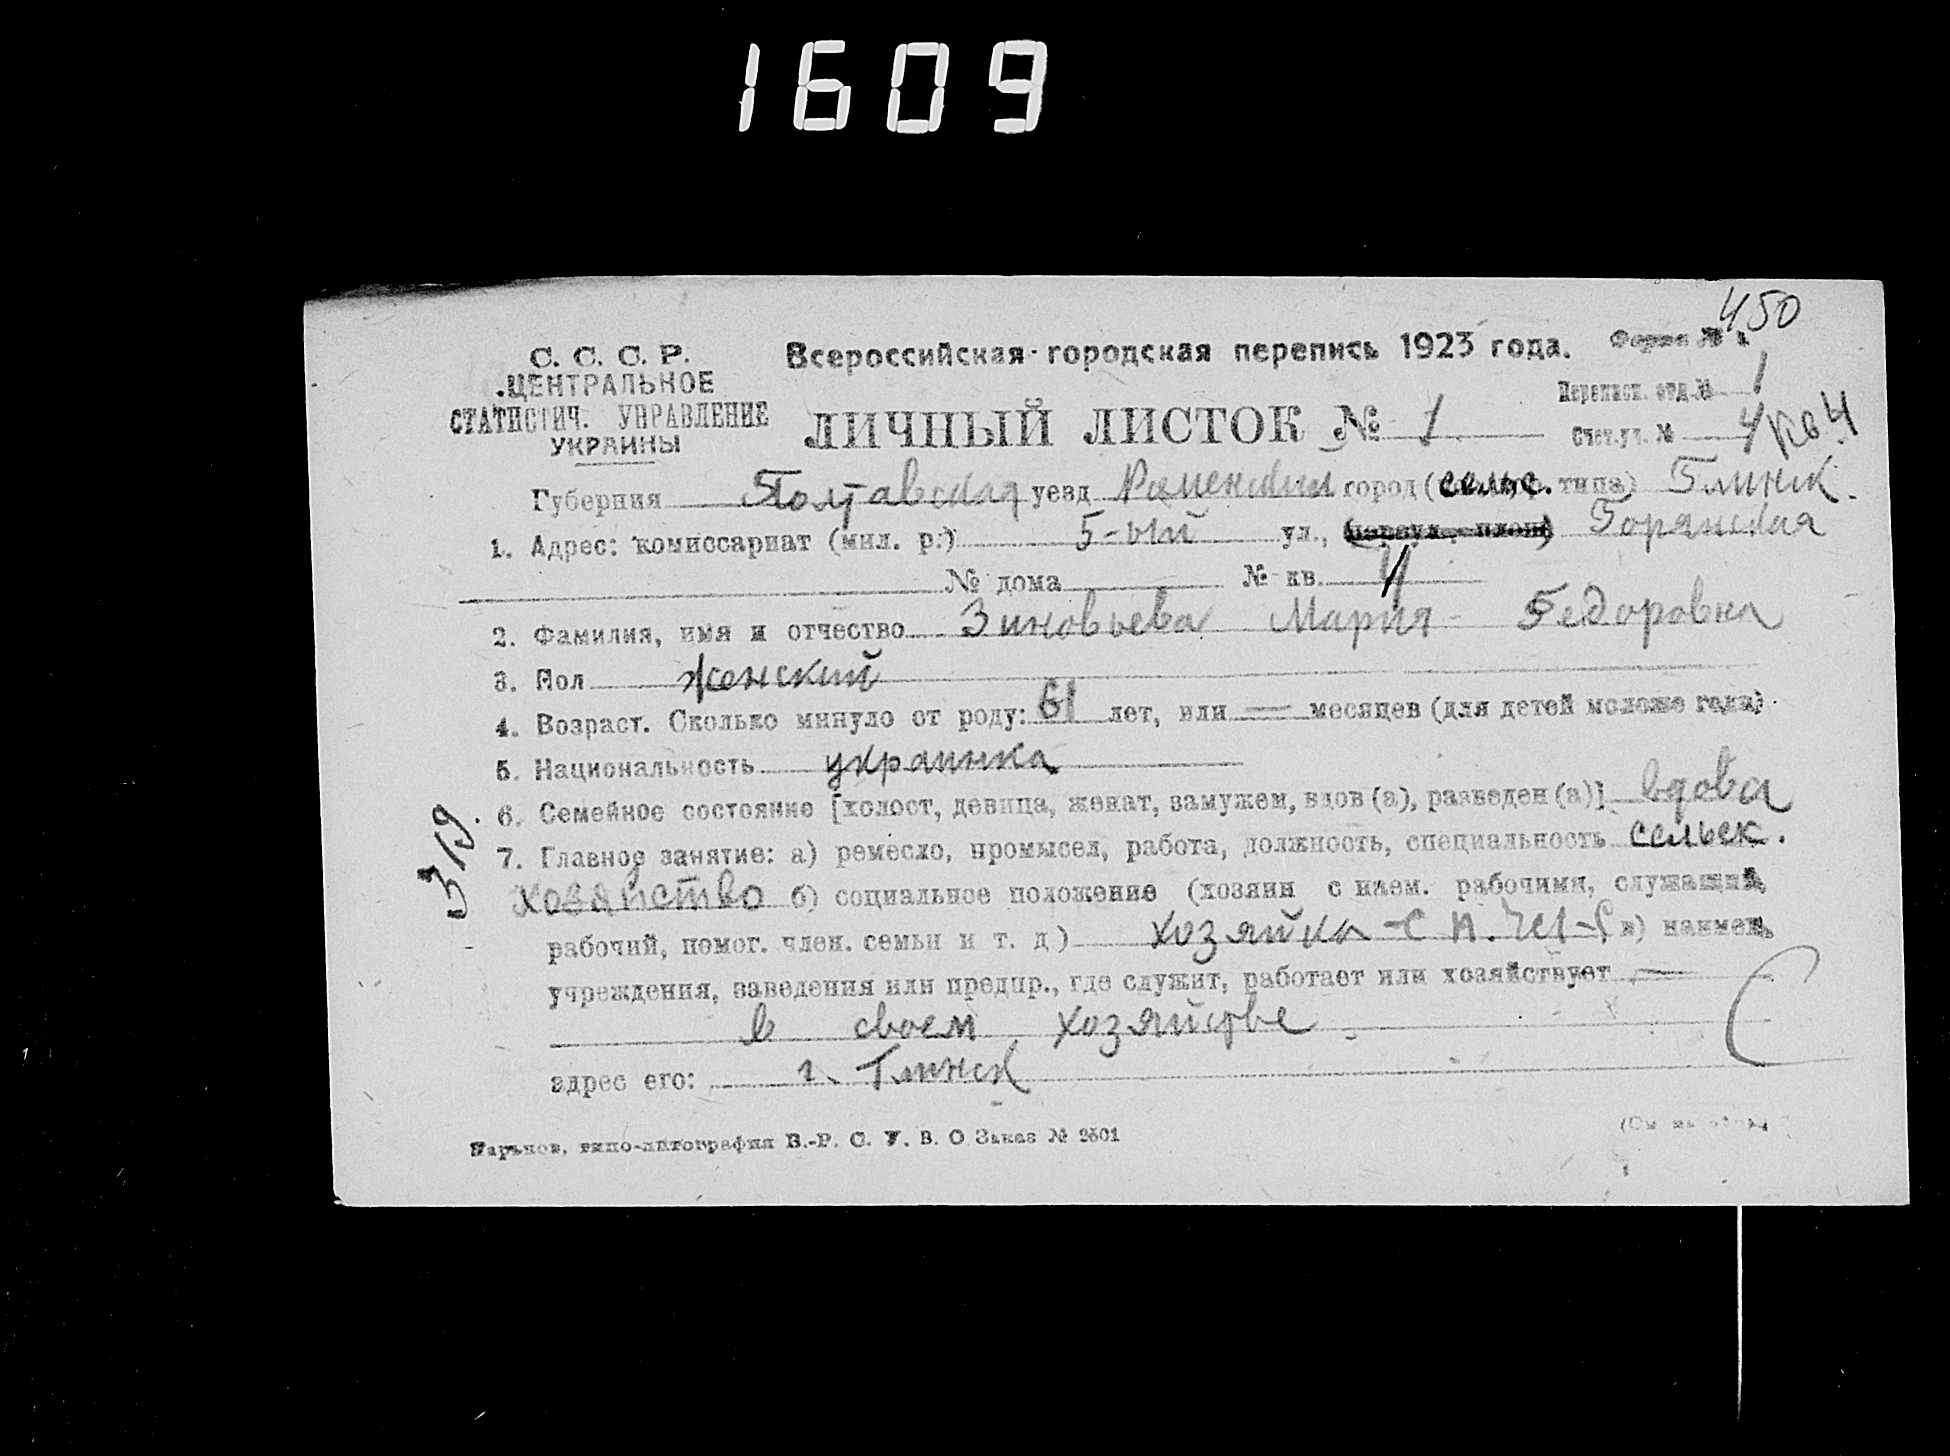 1609
450
С. С. С. Р.
ЦЕНТРАЛЬНОЕ
СТАТИСТИЧ. УПРАВЛЕНИЕ
УКРАИНЫ
Всероссийская городская перепись 1923 года. Форма № 1
Переписн. отд. № 1
ЛИЧНЫЙ ЛИСТОК № 1
Счет. уч. № 4 кв 4
Губерния Полтавская уезд Роменский город (сельс. типа) Глинск.
1. Адрес: комиссариат (мил. р.) 5-ый ул., Горянская
№ дома № кв. 4
2. Фамилия, имя и отчество Зиновьева Мария Федоровна
3. Пол женский
4. Возраст. Сколько минуло от роду: 61 лет, или — месяцев (для детей моложе года).
5. Национальность украинка
6. Семейное состояние [холост, девица, женат, замужем, вдов (а), разведен (а)] вдова
7. Главное занятие: а) ремесло, промысел, работа, должность, специальность сельск.
хозяйство б) социальное положение (хозяин с наем. рабочими, служащий,
рабочий, помог. член. семьи и т. д.) хозяйка - с п. чл-с в) наимен.
учреждения, заведения или предпр., где служит, работает или хозяйствует —
в своем хозяйстве
адрес его: г. Глинск
319
Харьков, типо-литография В.-Р. С. У. В. О. Заказ № 2601